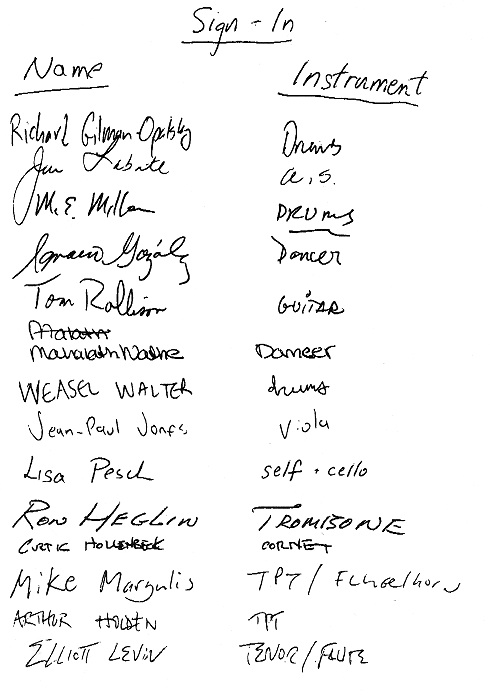 Sign-In
Name Instrument
Richard Gilman-Opalsky Drums
Jim a.s.
M.E. Miller DRUMS
Ignacio Gozález Dancer
Tom Rollison GUITAR
Dancer
WEASEL WALTER drums
Jean-Paul Jones Viola
Lisa Pesch self + cello
RON HEGLIN TROMBONE
CURTIS CORNET
Mike Margulis TPT / Flugelhorn
ARTHUR HOLDEN TPT
ELLIOTT LEVIN TENOR/FLUTE